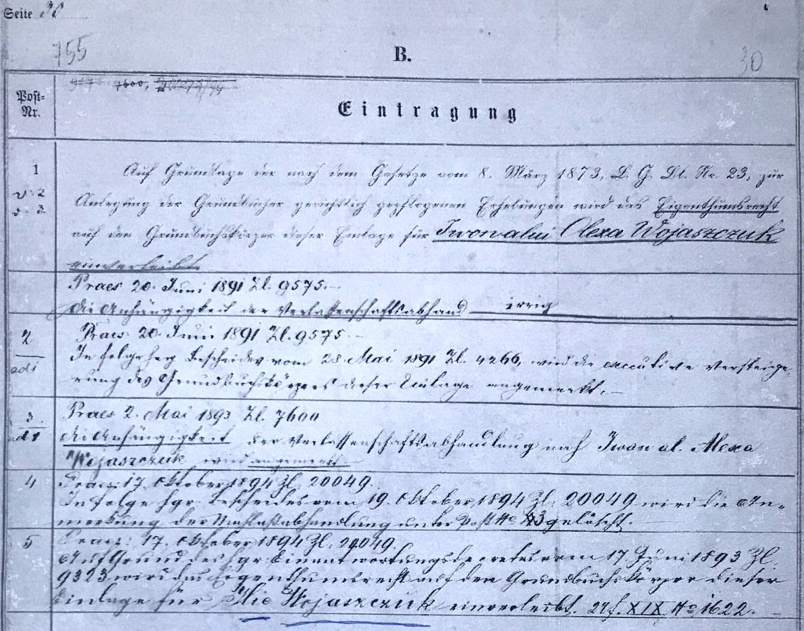 Seite 30
755
30
B.
Post-Nr.
Eintragung
1
Auf Grundlage der nach dem Gesetze vom 8. März 1873, L. G. Bl. Nr. 23, zur
Anlegung der Grundbücher gerichtlich gepflogenen Erhebungen wird das Eigenthumsrecht
auf den Grundbuchskörper dieser Einlage für Iwon alui Olexa Wojaszczuk
einverleibt
Praes 20. Juni 1891 Zl. 9575.
die Anhängigkeit der Verlassenschaftsabhand irrig
2
Praes. 20. Juni 1891 Zl. 9575.
In folge hrg Bescheides vom 28 Mai 1891 Zl. 4266, wird die executive Versteige-
rung des Grundbuchskörpers dieser Einlage angemerkt.
3
Praes 2. Mai 1893 Zl. 7600
die Anhängigkeit der Verlassenschaftsabhandlung nach Iwon al. Alexa
Wojaszczuk wird angemerkt
4
Praes. 17. Oktober 1894 Zl. 20049.
In folge hgr. Bescheides vom 19. Oktober 1894 Zl. 20049 wird die An-
merkung der Nachlaßabhandlung unter Post No 3 gelöscht.
5
Praes: 17. Oktober 1894 Zl. 20049.
Auf Grund des hgr Einantwortungsdecretes vom 17 Juni 1893 Zl.
9323 wird das Eigenthumsrecht auf den Grundbuchskörper dieser
Einlage für Ilie Wojaszczuk einverleibt. XIX No 1622.